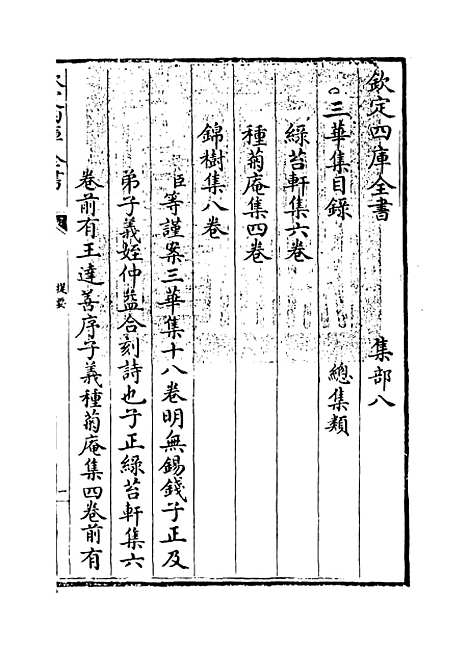 欽定四庫全書　集部八
三華集目錄　總集類
綠苔軒集六卷
種菊庵集四卷
錦樹集八卷
臣等謹案三華集十八卷明無錫錢子正及
弟子義姪仲益合刻詩也子正綠苔軒集六
卷前有王達善序子義種菊庵集四卷前有
欽定四庫全書
提要
一